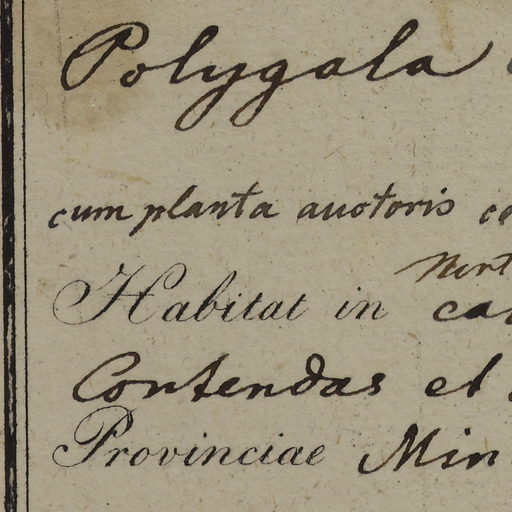 Polygala
cum planta auctoris
Habitat in
Contendas et
Provinciae Min